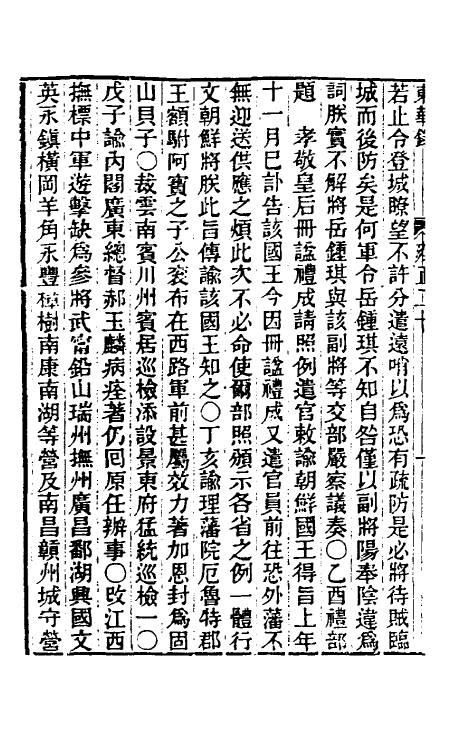 東華錄 雍正二十
若止令登城瞭望不許分遣遠哨以爲恐有疏防是必將待賊臨
城而後防矣是何軍令岳鍾琪不知自咎僅以副將陽奉陰違爲
詞朕實不解將岳鍾琪與該副將等交部嚴察議奏〇乙酉禮部
題 孝敬皇后冊諡禮成請照例遣官敕諭朝鮮國王得旨上年
十一月巳訃告該國王今因冊諡禮成又遣官員前往恐外藩不
無迎送供應之煩此次不必命使爾部照頒示各省之例一體行
文朝鮮將朕此旨傳諭該國王知之〇丁亥諭理藩院厄魯特郡
王額駙阿寳之子公袞布在西路軍前甚屬效力著加恩封爲固
山貝子〇裁雲南賓川州賓居巡檢添設景東府猛統巡檢一〇
戊子諭內閣廣東總督郝玉麟病痊著仍囘原任辦事〇改江西
撫標中軍遊擊缺爲參將武甯鉛山瑞州撫州廣昌鄱湖興國文
英永鎮橫岡羊角永豐樟樹南康南湖等營及南昌贛州城守營